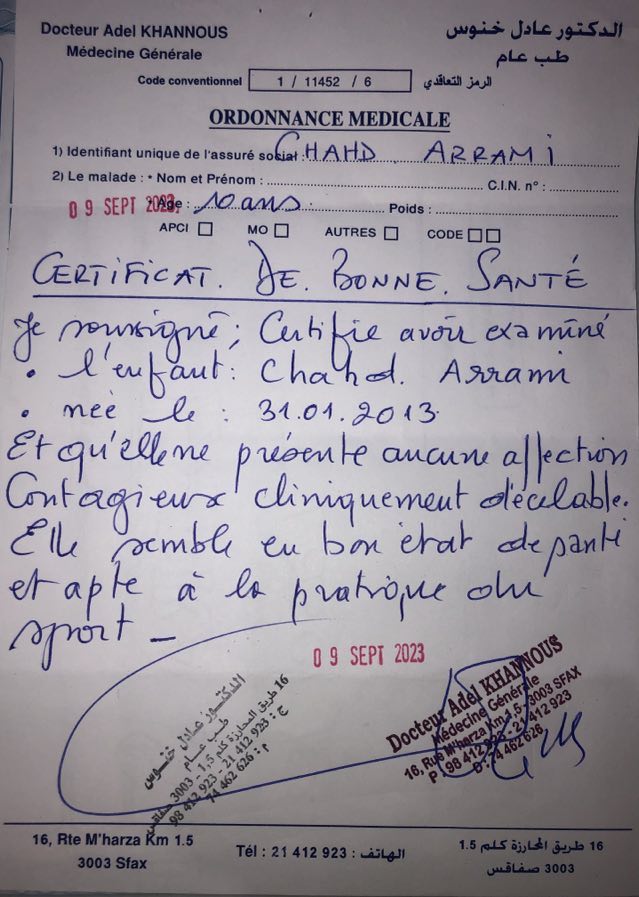 Docteur Adel KHANNOUS
Médecine Générale
الدكتور عادل خنوس
طب عام
Code conventionnel 1 / 11452 / 6 الرمز التعاقدي
ORDONNANCE MEDICALE
1) Identifiant unique de l'assuré social : CHAHD. ARRAMI
2) Le malade : • Nom et Prénom : C.I.N. n° :
09 SEPT 2023 • Age : 10 ans. Poids :
APCI MO AUTRES CODE
CERTIFICAT. DE. BONNE. SANTÉ
Je soussigné; Certifie avoir examiné
• l'enfant: Chahd. Arrami
• née le : 31.01.2013
Et qu'elle ne présente aucune affection
Contagieux cliniquement décelable.
Elle semble en bon état de santé
et apte à la pratique du
sport _
09 SEPT 2023
الدكتور عادل خنوس
طب عام
16 طريق المحارزة كلم 1,5 - 3003 صفاقس
ع : 923 412 21 - 923 412 98
م : 626 462 74
Docteur Adel KHANNOUS
Médecine Générale
16, Rue M'harza Km 1,5 - 3003 SFAX
P : 98 412 923 - 21 412 923
D : 74 462 626
16, Rte M'harza Km 1.5
3003 Sfax
Tél : 21 412 923 : الهاتف
16 طريق المحارزة كلم 1.5
3003 صفاقس